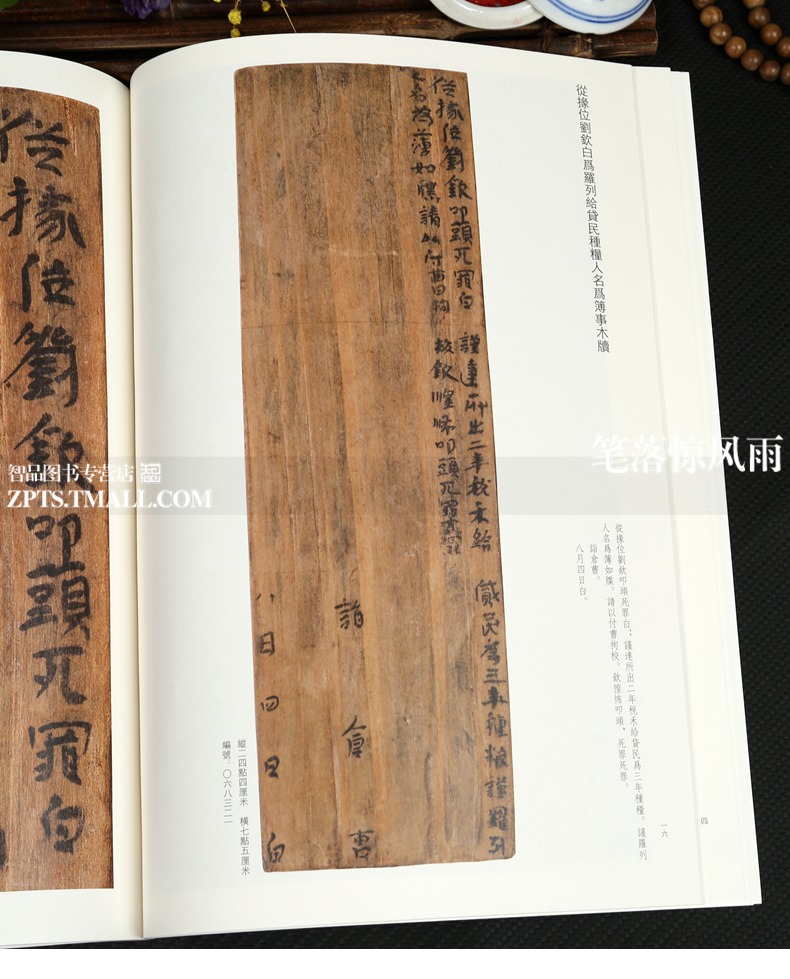 從掾位劉欽白爲羅列給貸民種糧人名爲簿事木牘
從掾位劉欽叩頭死罪白：謹達所出二年稅禾給貸民爲三年種糧。謹羅列
人名爲簿如牒。請以付曹拘校。欽惶怖叩頭，死罪死罪。
詣倉曹。
八月四日白。
從掾位劉欽叩頭死罪白 謹達所出二年稅禾給 貸民爲三年種粮謹羅列
人名爲簿如牒請以付曹拘校 欽惶怖叩頭死罪死罪
詣 倉 曹
八月四日白
縱二四點四厘米 橫七點五厘米
編號：〇六八三二一
從掾位劉欽叩頭死罪白
一六
四
笔落惊风雨
智品图书专营店
ZPTS.TMALL.COM